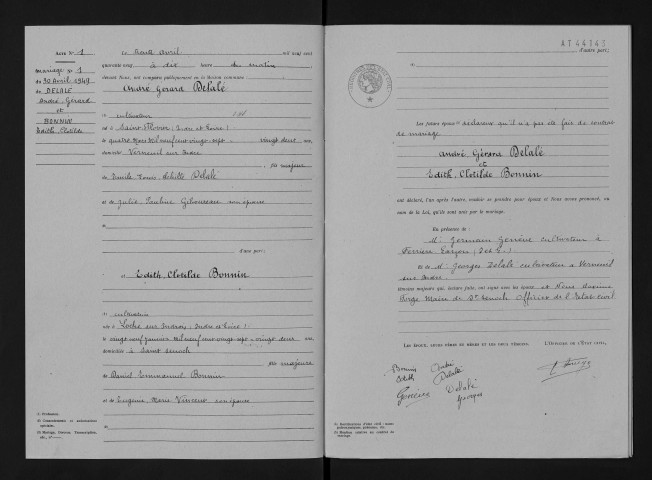 Acte N° 1
Mariage N° 1
du 30 Avril 1949
de DELALÉ
André Gérard
et
BONNIN
Edith Clotilde
Le trente avril mil neuf cent
quarante neuf à dix heure du matin
devant Nous, ont comparu publiquement en la Maison commune :
André Gérard Delalé
cultivateur
né à Saint Flovier (Indre et Loire)
le quatre Mars mil neuf cent vingt sept vingt deux ans
domicilié Verneuil sur Indre
fils majeur
de Emile Louis Achille Delalé
et de Julie Pauline son épouse
d'une part ;
et Edith, Clotilde Bonnin
cultivatrice
née à Loché sur Indrois (Indre et Loire)
le vingt neuf janvier mil neuf cent vingt sept vingt deux ans
domiciliée à Saint Senoch
fille majeure
de Daniel Emmanuel Bonnin
et de Eugénie Marie Vincent son épouse
1) Profession.
2) Consentements et autorisations spéciales.
3) Mariage, Divorce, Transcription,
AT 44343
d'autre part ;
Les futurs époux déclarent qu'il n'a pas été fait de contrat
de mariage
André Gérard Delalé
et
Edith, Clotilde Bonnin
ont déclaré, l'un après l'autre, vouloir se prendre pour époux et Nous avons prononcé, au
nom de la Loi, qu'ils sont unis par le mariage.
En présence de
M. Germain cultivateur à
Ferrière Larçon
et de M. Georges Delalé cultivateur à Verneuil
sur Indre
témoins majeurs qui, lecture faite, ont signé avec les époux et Nous
Maire de St Senoch Officier de l'Etat civil
Les époux, leurs pères et mères et les deux témoins. L'Officier de l'État civil,
Bonnin André
Edith Delalé
Delalé
Georges